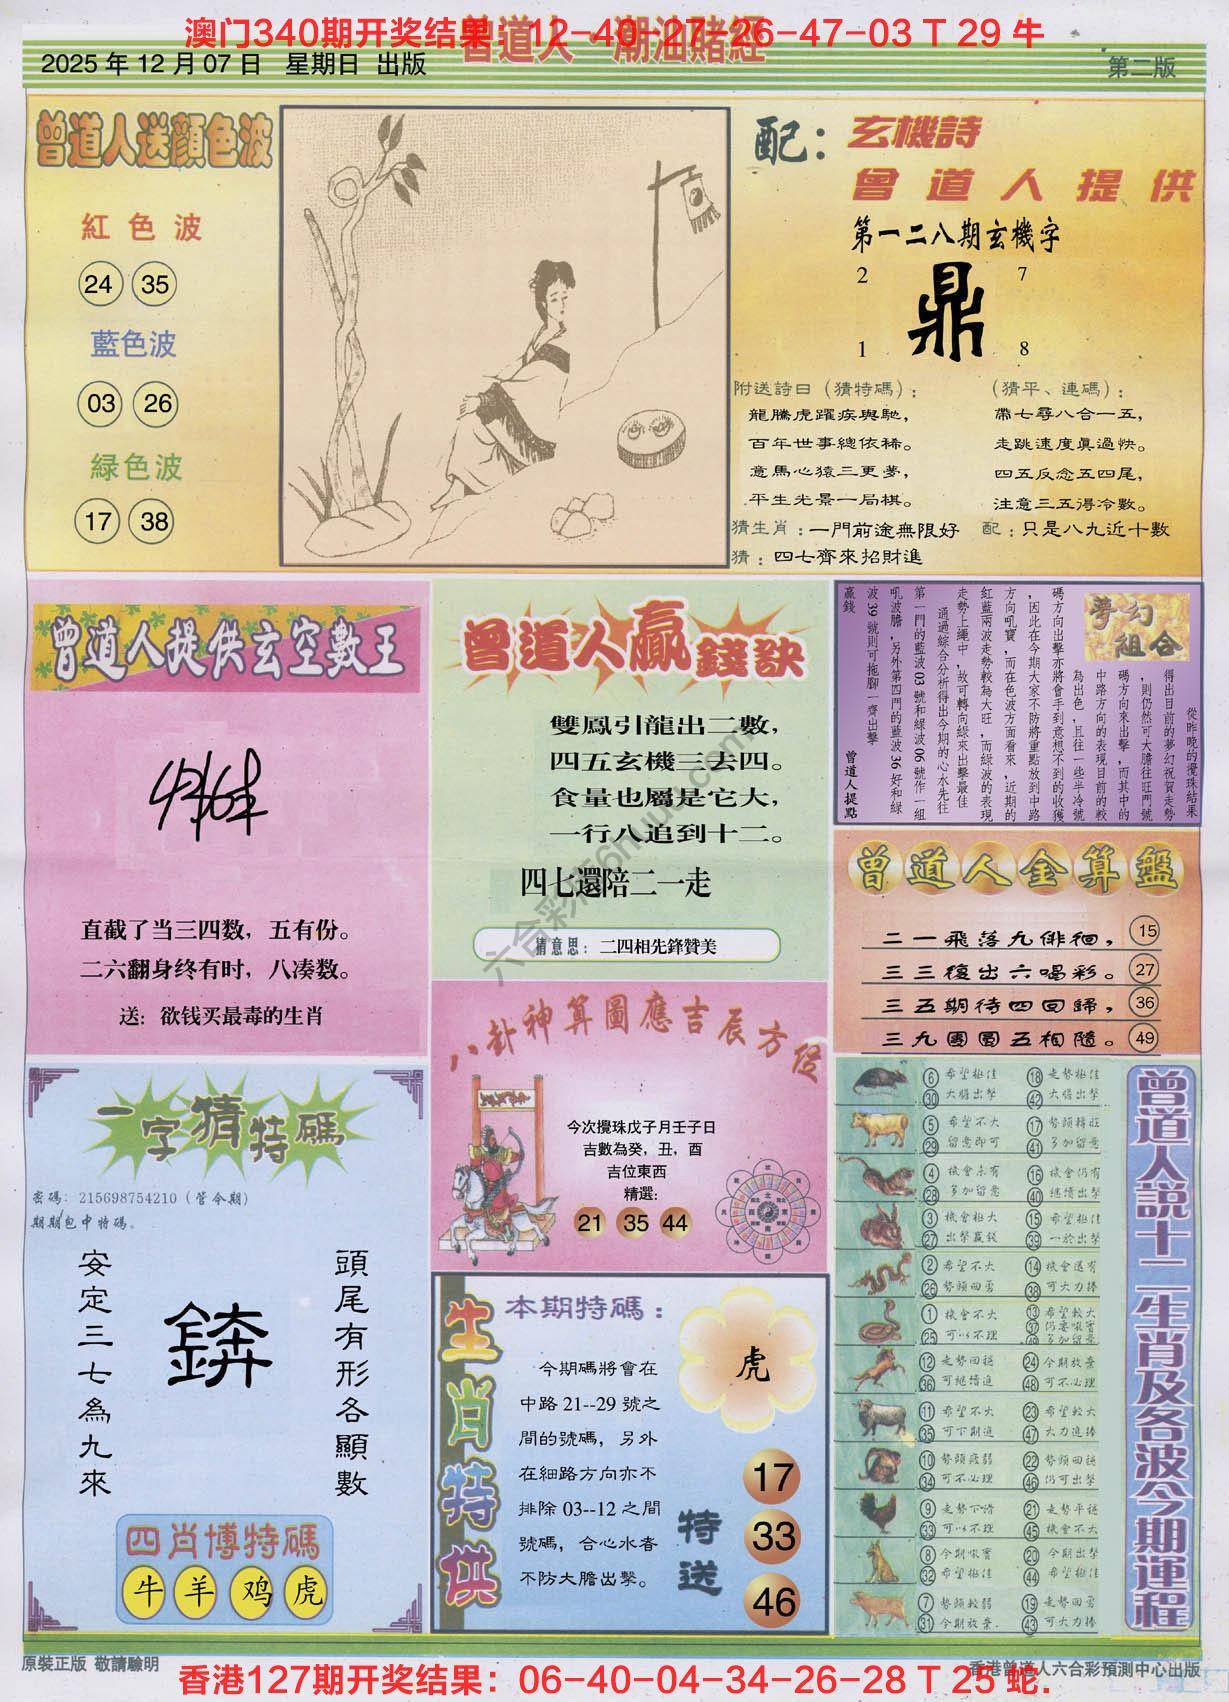 澳门340期开奖结果：12-40-27-26-47-03 T 29 牛
曾道人·潮汕賭經
2025 年 12 月 07 日 星期日 出版
第二版
曾道人送顏色波
紅色波
24 35
藍色波
03 26
緑色波
17 38
配：玄機詩
曾道人提供
第一二八期玄機字
2 7
鼎
1 8
附送詩曰（猜特碼）：
龍騰虎躍疾與馳，
百年世事總依稀。
意馬心猿三更夢，
平生光景一局棋。
（猜平、連碼）：
帶七尋八合一五，
走跳速度眞過快。
四五反念五四尾，
注意三五得冷數。
猜生肖：一門前途無限好
配：只是八九近十數
猜：四七齊來招財進
曾道人提供玄空數王
直截了当三四数，五有份。
二六翻身终有时，八凑数。
送：欲钱买最毒的生肖
曾道人贏錢訣
雙鳳引龍出二數，
四五玄機三去四。
食量也屬是它大，
一行八追到十二。
四七還陪二一走
猜意思：二四相先鋒贊美
夢幻組合
從昨晚的攪珠結果
得出目前的夢幻祝賀走勢
，則仍然可大膽往旺門號
碼方向來出擊，而其中的
中路方向的表現目前的較
為出色，且往一些半冷號
碼方向出擊亦將會手到意想不到的收獲
，因此在今期大家不防將重點放到中路
方向吼寶，而在色波方面看來，近期的
紅藍兩波走勢較為大旺，而綠波的表現
走勢上繩中，故可轉向綠來出擊最佳
通過綜合分析得出今期的心水先往
第一門的藍波 03 號和綠波 06 號作一組
吼波膽，另外第四門的藍波 36 好和綠
波 39 號則可拖腳一齊出擊
贏錢
曾道人提點
曾道人金算盤
二一飛落九俳徊，15
三三復出六喝彩。27
三五期待四回歸，36
三九團圓五相隨。49
八卦神算圖應吉辰方位
今次攪珠戊子月壬子日
吉數為癸，丑，酉
吉位東西
精選：
21 35 44
一字猜特碼
密碼：215698754210（管令期）
期期包中特碼。
頭尾有形各顯數
安定三七為九來
錛
四肖博特碼
牛 羊 鸡 虎
生肖特供
本期特碼：
今期碼將會在
中路 21--29 號之
間的號碼，另外
在細路方向亦不
排除 03--12 之間
號碼，合心水者
不防大膽出擊。
虎
特送
17
33
46
曾道人説十二生肖及各波今期運程
6 希望極佳 18 走勢極佳
30 大膽出擊 42 大膽出擊
5 希望不大 17 勢頭轉旺
29 留意即可 41 多加留意
4 機會未有 16 機會仍有
28 多加留意 40 繼續出擊
3 機會極大 15 希望極佳
27 出擊贏錢 39 一於出擊
2 希望不大 14 機會還有
26 勢頭回勇 38 可大力捧
1 機會不大 13 希望較大
25 可以不理 37 仍要吼實
49 多加留意
12 走勢回穩 24 今期放棄
36 可繼續追 48 可不必理
11 希望不大 23 希望較大
35 可下期追 47 大力追捧
10 勢頭疲弱 22 勢頭回穩
34 可不必理 46 仍可出擊
9 走勢下滑 21 走勢平穩
33 可以不理 45 機會不大
8 今期吼實 20 今期出擊
32 希望極佳 44 希望極佳
7 勢頭較弱 19 走勢回勇
31 今期放棄 43 可大力捧
原裝正版 敬請驗明
香港曾道人六合彩預測中心出版
香港127期开奖结果：06-40-04-34-26-28 T 25 蛇.